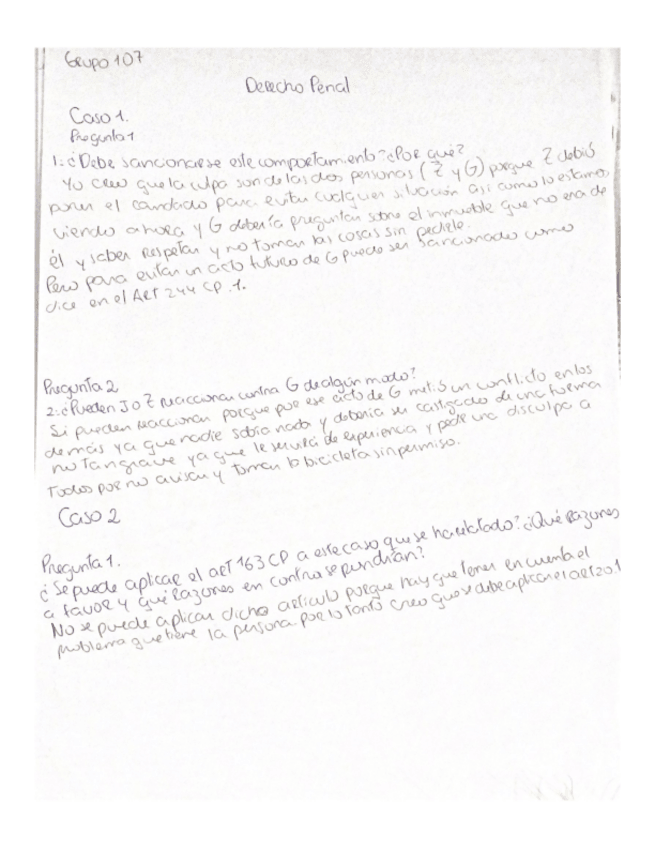 Grupo 107
Derecho Penal
Caso 1.
Pregunta 1
1. ¿Debe sancionarse este comportamiento? ¿Por qué?
Yo creo que la culpa son de las dos personas (Z y G) porque Z debió
poner el candado para evitar cualquier situación así como lo estamos
viendo ahora y G debería preguntar sobre el inmueble que no era de
él y saber respetar y no tomar las cosas sin pedirle.
Pero para evitar un acto futuro de G puede ser sancionado como
dice en el Art 244 CP.1.
Pregunta 2
2. ¿Pueden J o Z reaccionar contra G de algún modo?
Si pueden reaccionar porque por ese acto de G metió un conflicto en los
demás ya que nadie sabia nada y debería ser castigado de una forma
no tan grave ya que le servirá de experiencia y pedir una disculpa a
Todos por no avisar y tomar la bicicleta sin permiso.
Caso 2
Pregunta 1.
¿Se puede aplicar el art 163 CP a este caso que se ha relatado? ¿Qué razones
a favor y qué razones en contra se pondrían?
No se puede aplicar dicho artículo porque hay que tener en cuenta el
problema que tiene la persona por lo tanto creo que se debe aplicar el art 201